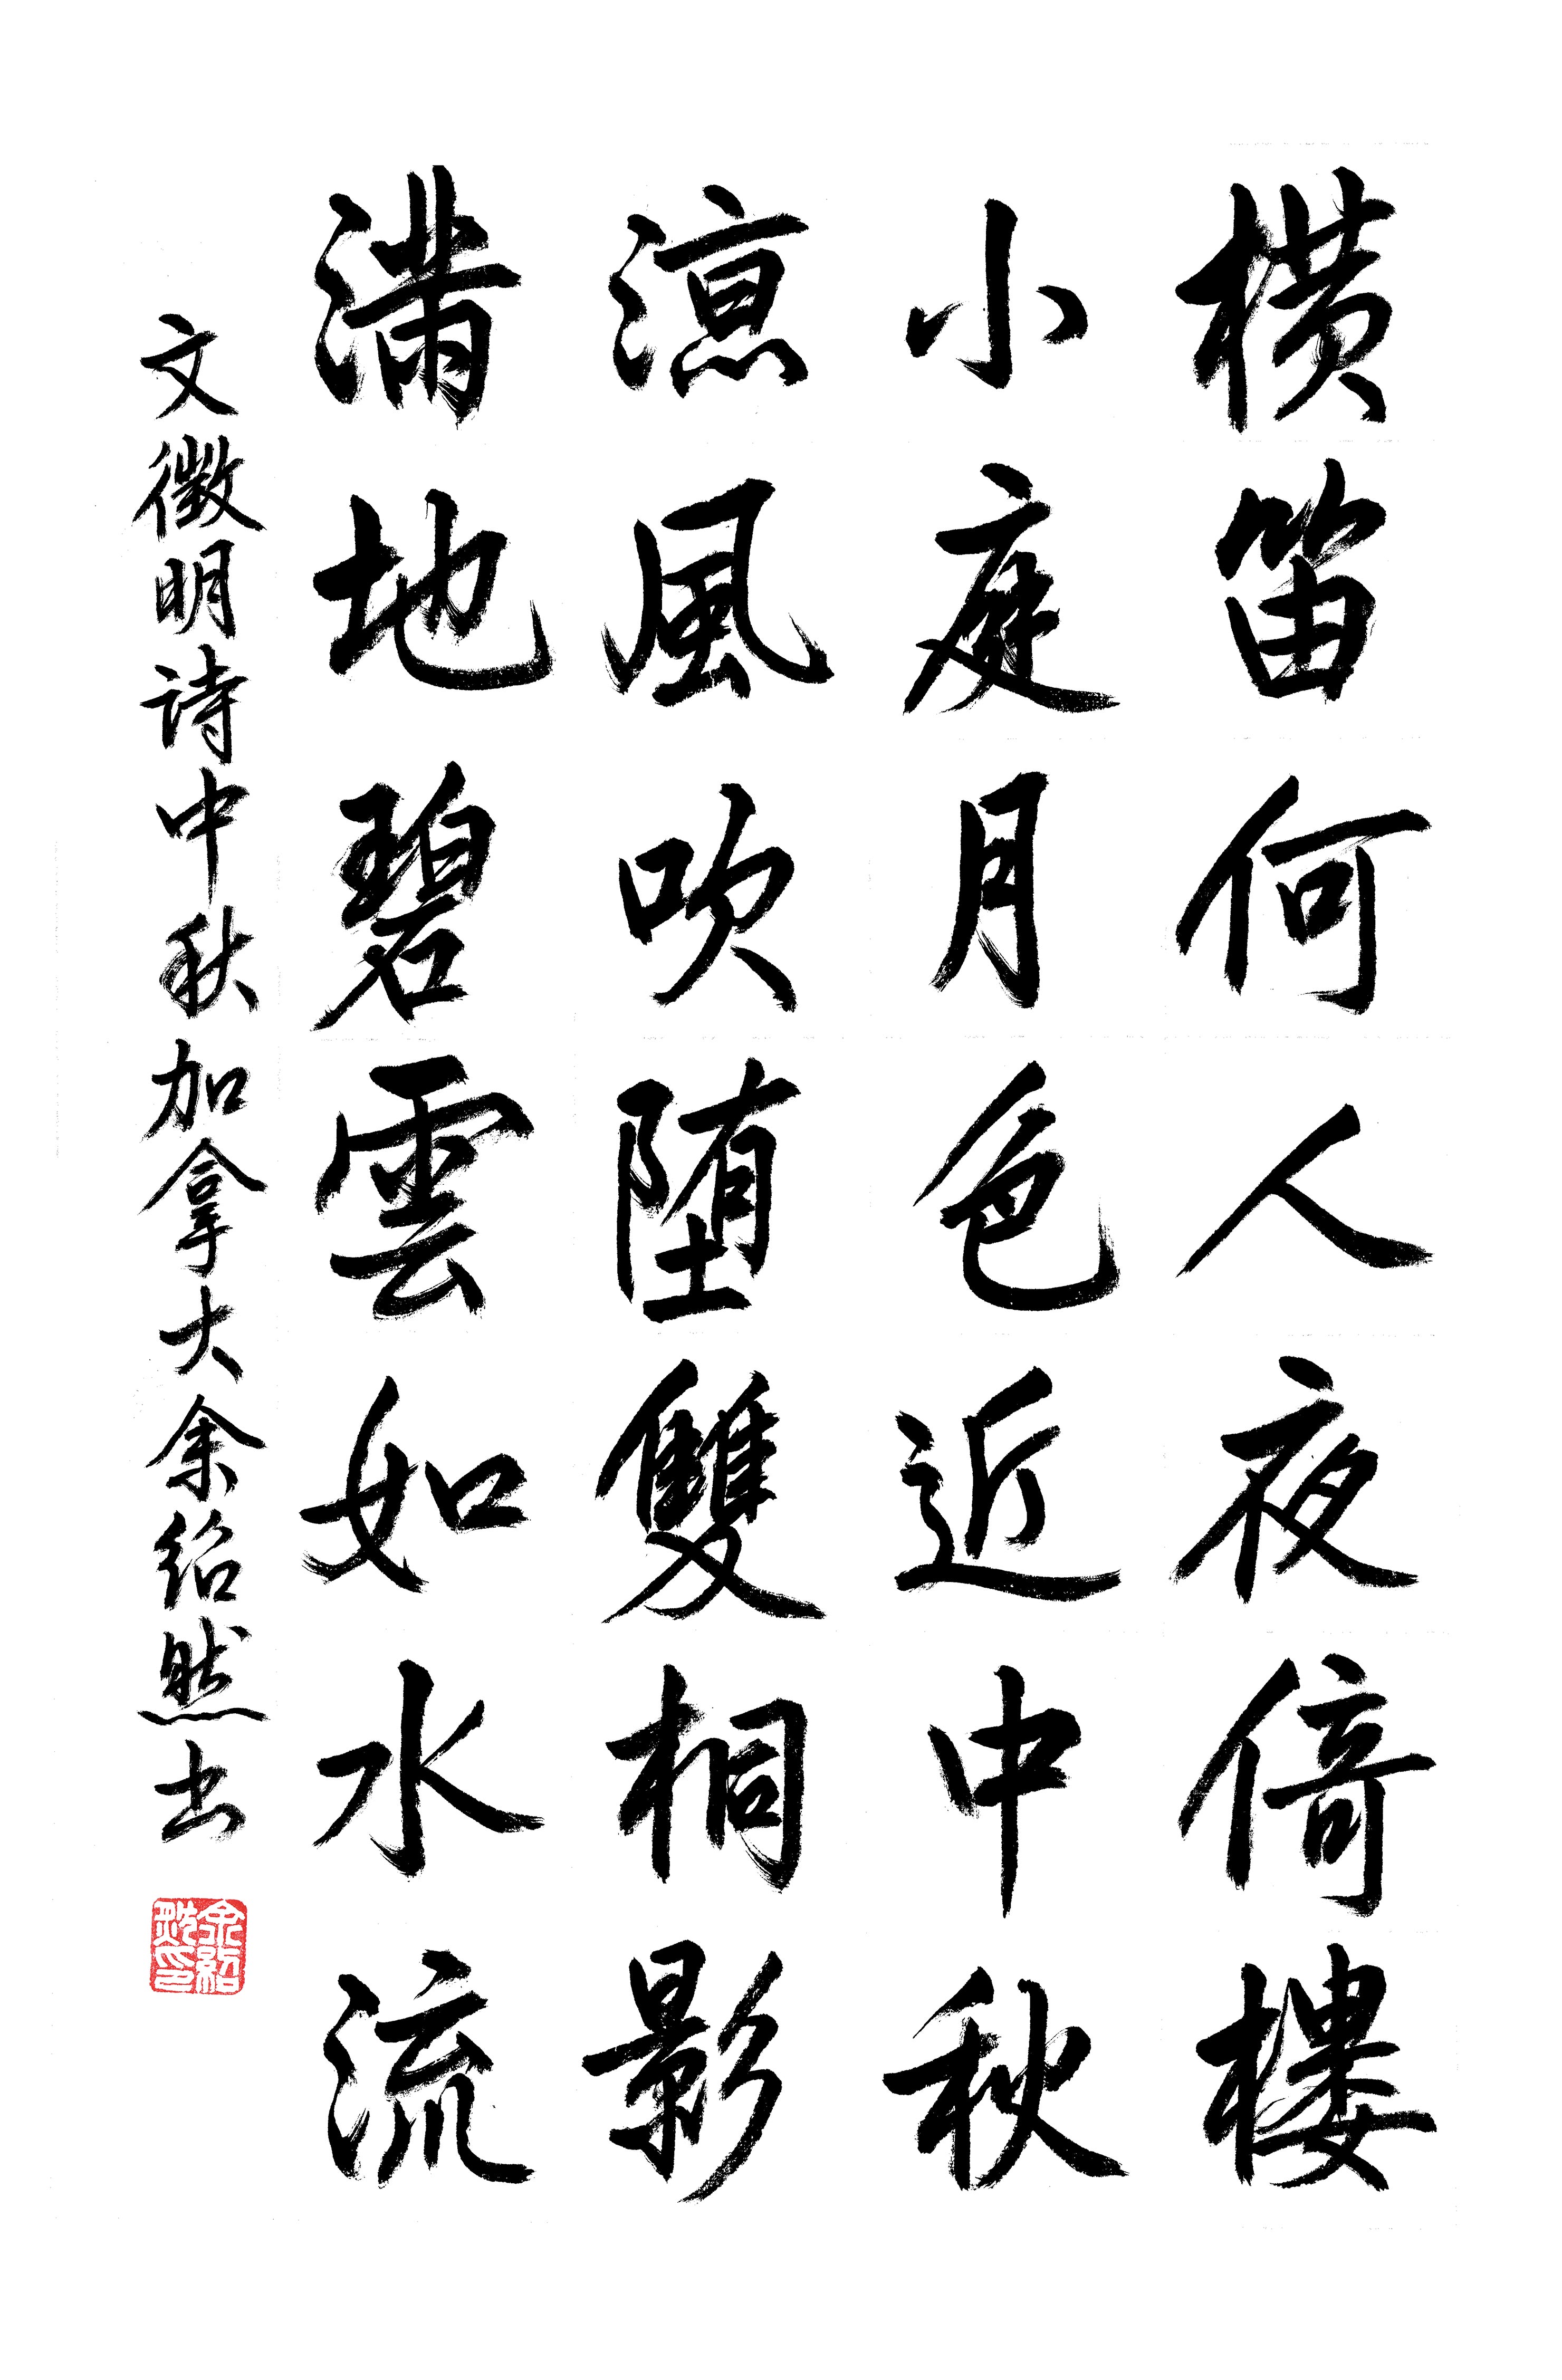 横笛何人夜倚樓
小庭月色近中秋
涼風吹堕雙桐影
满地碧雲如水流
文徵明诗中秋加拿大余绍然书
余紹然印